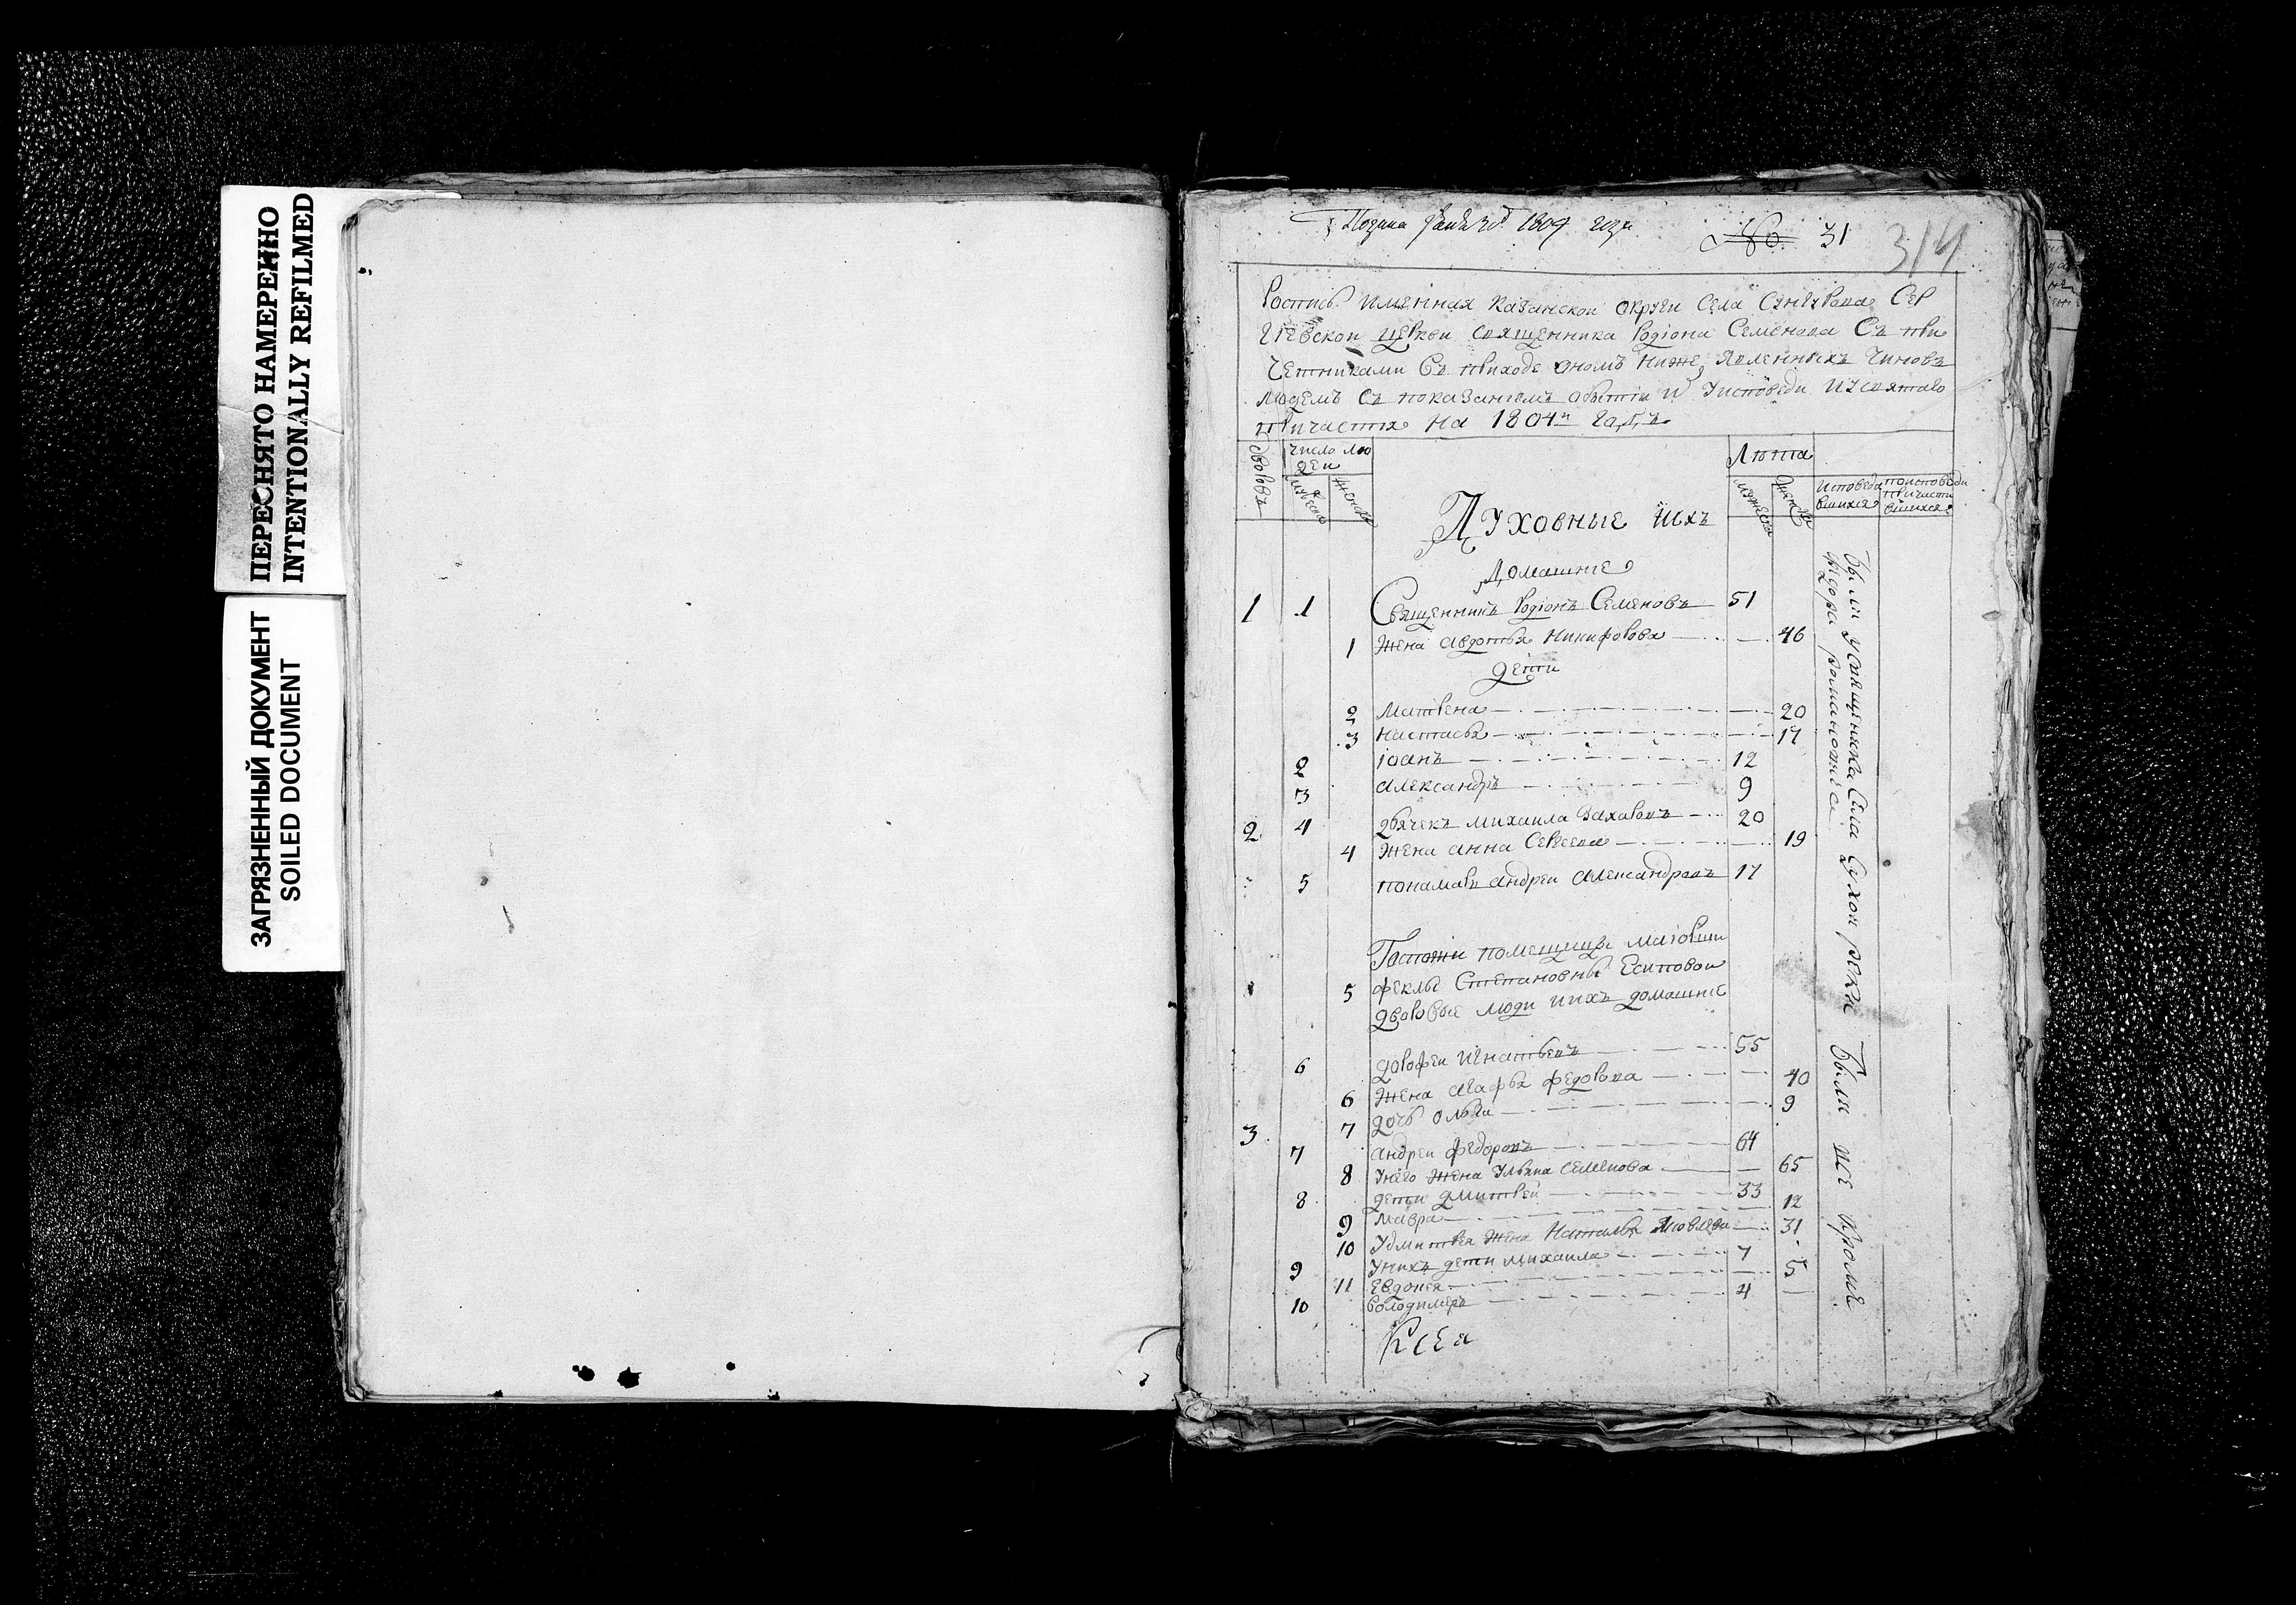 ПЕРЕСНЯТО НАМЕРЕННО
INTENTIONALLY REFILMED
ЗАГРЯЗНЕННЫЙ ДОКУМЕНТ
SOILED DOCUMENT
1804 года
№ 31
314
Роспись именная Казанской округи села Сер
гиевской церкви священника Родiона Семенова съ при
четниками съ приходе ономъ ниже явленныхъ чиновъ
людемъ съ показанiемъ о бытiи и у исповеди и у святаго
причастя на 1804й годъ
дворовъ
число лю
дей
мужеска
женска
Лета
мужеска
женска
исповеда
вшихся
по исповеди
причасти
вшихся
Духовные ихъ
Домашние
1 1 Священникъ Родiонъ Семеновъ 51
1 Жена Авдотья Никифорова 46
дети
2 Матрена 20
3 Настасья 17
2 Iоанъ 12
3 Александръ 9
2 4 дьячекъ Михаила Захаровъ 20
4 Жена Анна Сергеева 19
5 понамарь Андреи Александровъ 17
Госпожи помещицы маiорши
5 Феклы Степановны Есиповой
дворовые люди и ихъ домашние
6 Дорофеи Игнатьевъ 55
6 Жена Агафья Федорова 40
7 дочь Ольга 9
3 7 Андреи Федоровъ 64
8 У него жена Ульяна Семенова 65
8 дети Дмитреи 33
9 Мавра 12
10 У Дмитрея жена Наталья Яковлева 31
9 У нихъ дети Михаила 7
11 Евдокея 5
10 Володимеръ 4
были у священника села Сухой реки
были все кроме